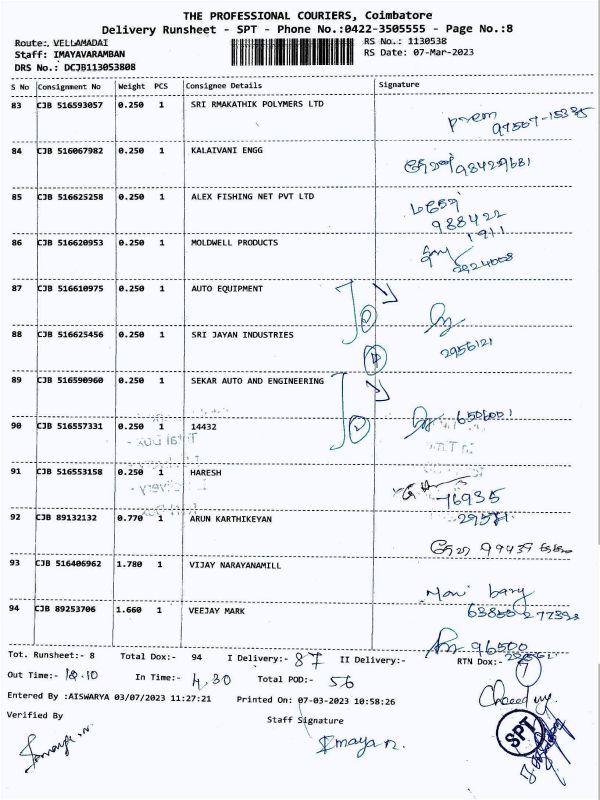 THE PROFESSIONAL COURIERS, Coimbatore
Delivery Runsheet - SPT - Phone No.:0422-3505555 - Page No.:8
Route:. VELLAMADAI
RS No.: 1130538
Staff: IMAYAVARAMBAN
RS Date: 07-Mar-2023
DRS No.: DCJB113053808
S No Consignment No Weight PCS Consignee Details Signature
83 CJB 516593057 0.250 1 SRI RMAKATHIK POLYMERS LTD
Prem
84 CJB 516067982 0.250 1 KALAIVANI ENGG
98429681
85 CJB 516625258 0.250 1 ALEX FISHING NET PVT LTD
988422
1911
86 CJB 516620953 0.250 1 MOLDWELL PRODUCTS
2924008
87 CJB 516610975 0.250 1 AUTO EQUIPMENT
88 CJB 516625456 0.250 1 SRI JAYAN INDUSTRIES
2956121
89 CJB 516590960 0.250 1 SEKAR AUTO AND ENGINEERING
90 CJB 516557331 0.250 1 14432
6506001
91 CJB 516553158 0.250 1 HARESH
76935
92 CJB 89132132 0.770 1 ARUN KARTHIKEYAN
93 CJB 516406962 1.780 1 VIJAY NARAYANAMILL
Mani
94 CJB 89253706 1.660 1 VEEJAY MARK
96500
Tot. Runsheet:- 8 Total Dox:- 94 I Delivery:- 87 II Delivery:- RTN Dox:- 7
Out Time:- 10.10 In Time:- 4.30 Total POD:- 56
Entered By :AISWARYA 03/07/2023 11:27:21 Printed On: 07-03-2023 10:58:26
Verified By
Staff Signature
SPT